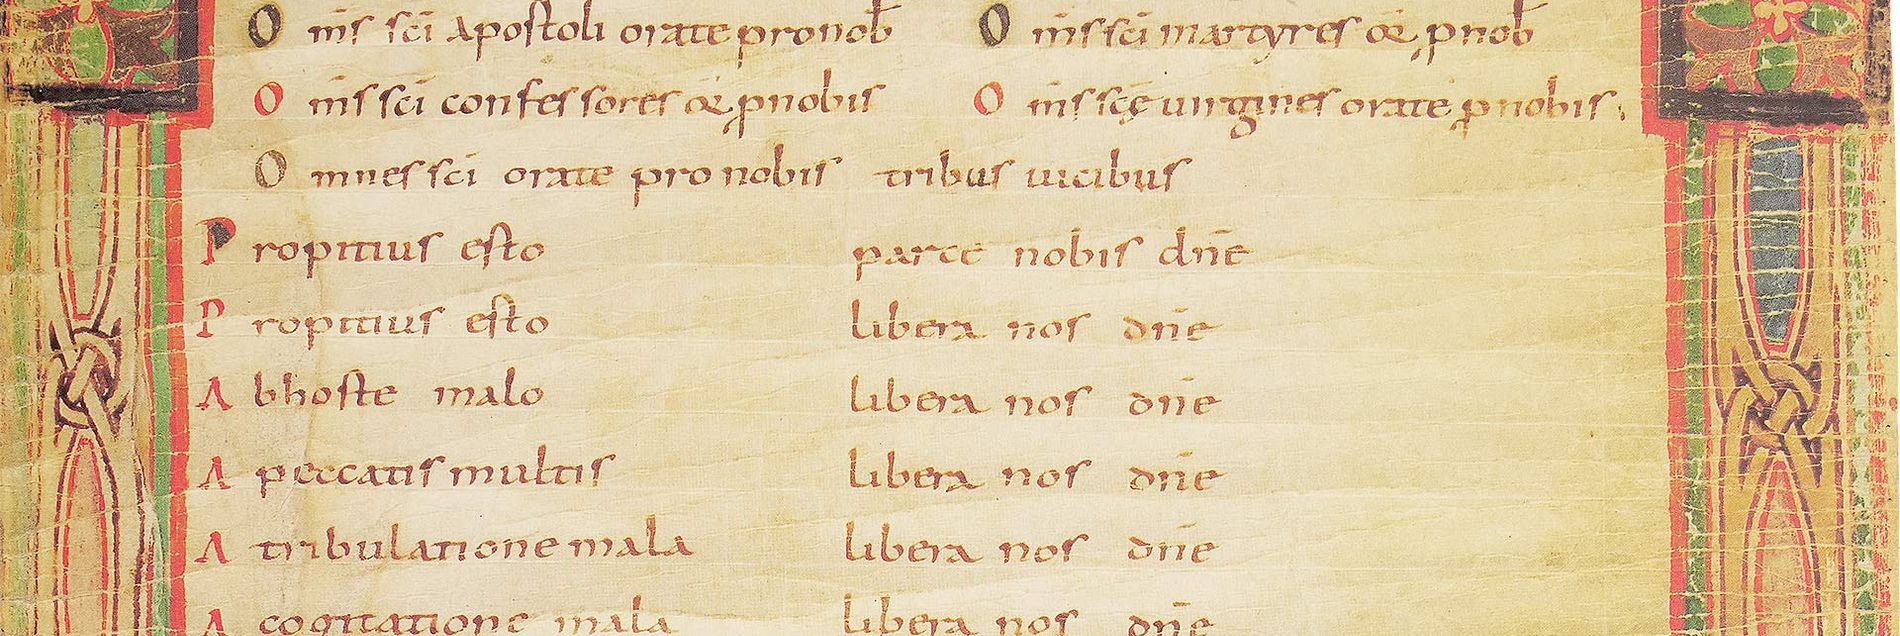 Om̄s sc̄i Apostoli orate pro nob̄ Om̄s sc̄i martyres or̄ p nob̄
Om̄s sc̄i confessores or̄ p nobis Om̄s sc̄ę uirgines orate p nobis.
Omnes sc̄i orate pro nobis tribus uicibus
Propitius esto parce nobis dn̄e
Propitius esto libera nos dn̄e
Ab hoste malo libera nos dn̄e
A peccatis multis libera nos dn̄e
A tribulatione mala libera nos dn̄e
A cogitatione mala libera nos dn̄e